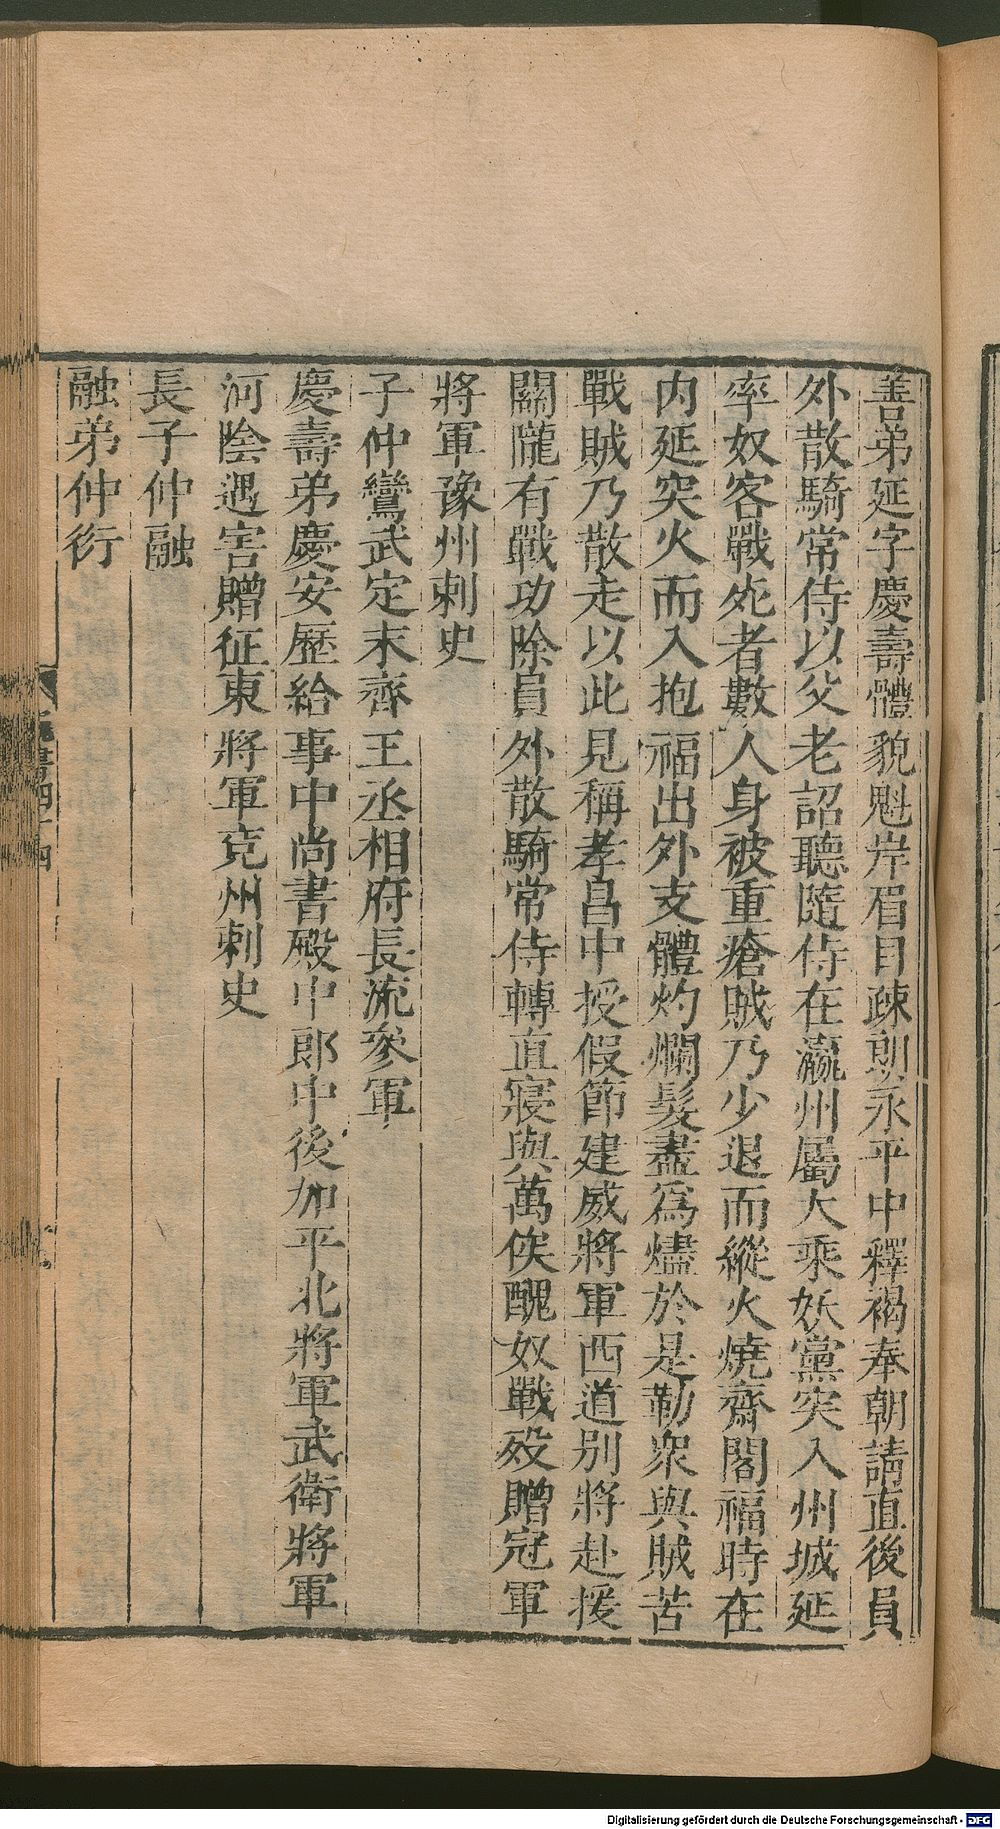 善弟延字慶壽體貌魁岸眉目疎朗永平中釋褐奉朝請直後員
外散騎常侍以父老詔聽隨侍在瀛州屬大乘妖黨突入州城延
率奴客戰死者數人身被重瘡賊乃少退而縱火燒齋閣福時在
内延突火而入抱福出外支體灼爛髮盡爲燼於是勒衆與賊苦
戰賊乃散走以此見稱孝昌中授假節建威將軍西道别將赴援
關隴有戰功除員外散騎常侍轉直寢與萬俟醜奴戰歿贈冠軍
將軍豫州刺史
子仲鸞武定末齊王丞相府長流參軍
慶壽弟慶安歷給事中尚書殿中郎中後加平北將軍武衛將軍
河陰遇害贈征東將軍兖州刺史
長子仲融
融弟仲衍
魏書四十四
Digitalisierung gefördert durch die Deutsche Forschungsgemeinschaft - DFG